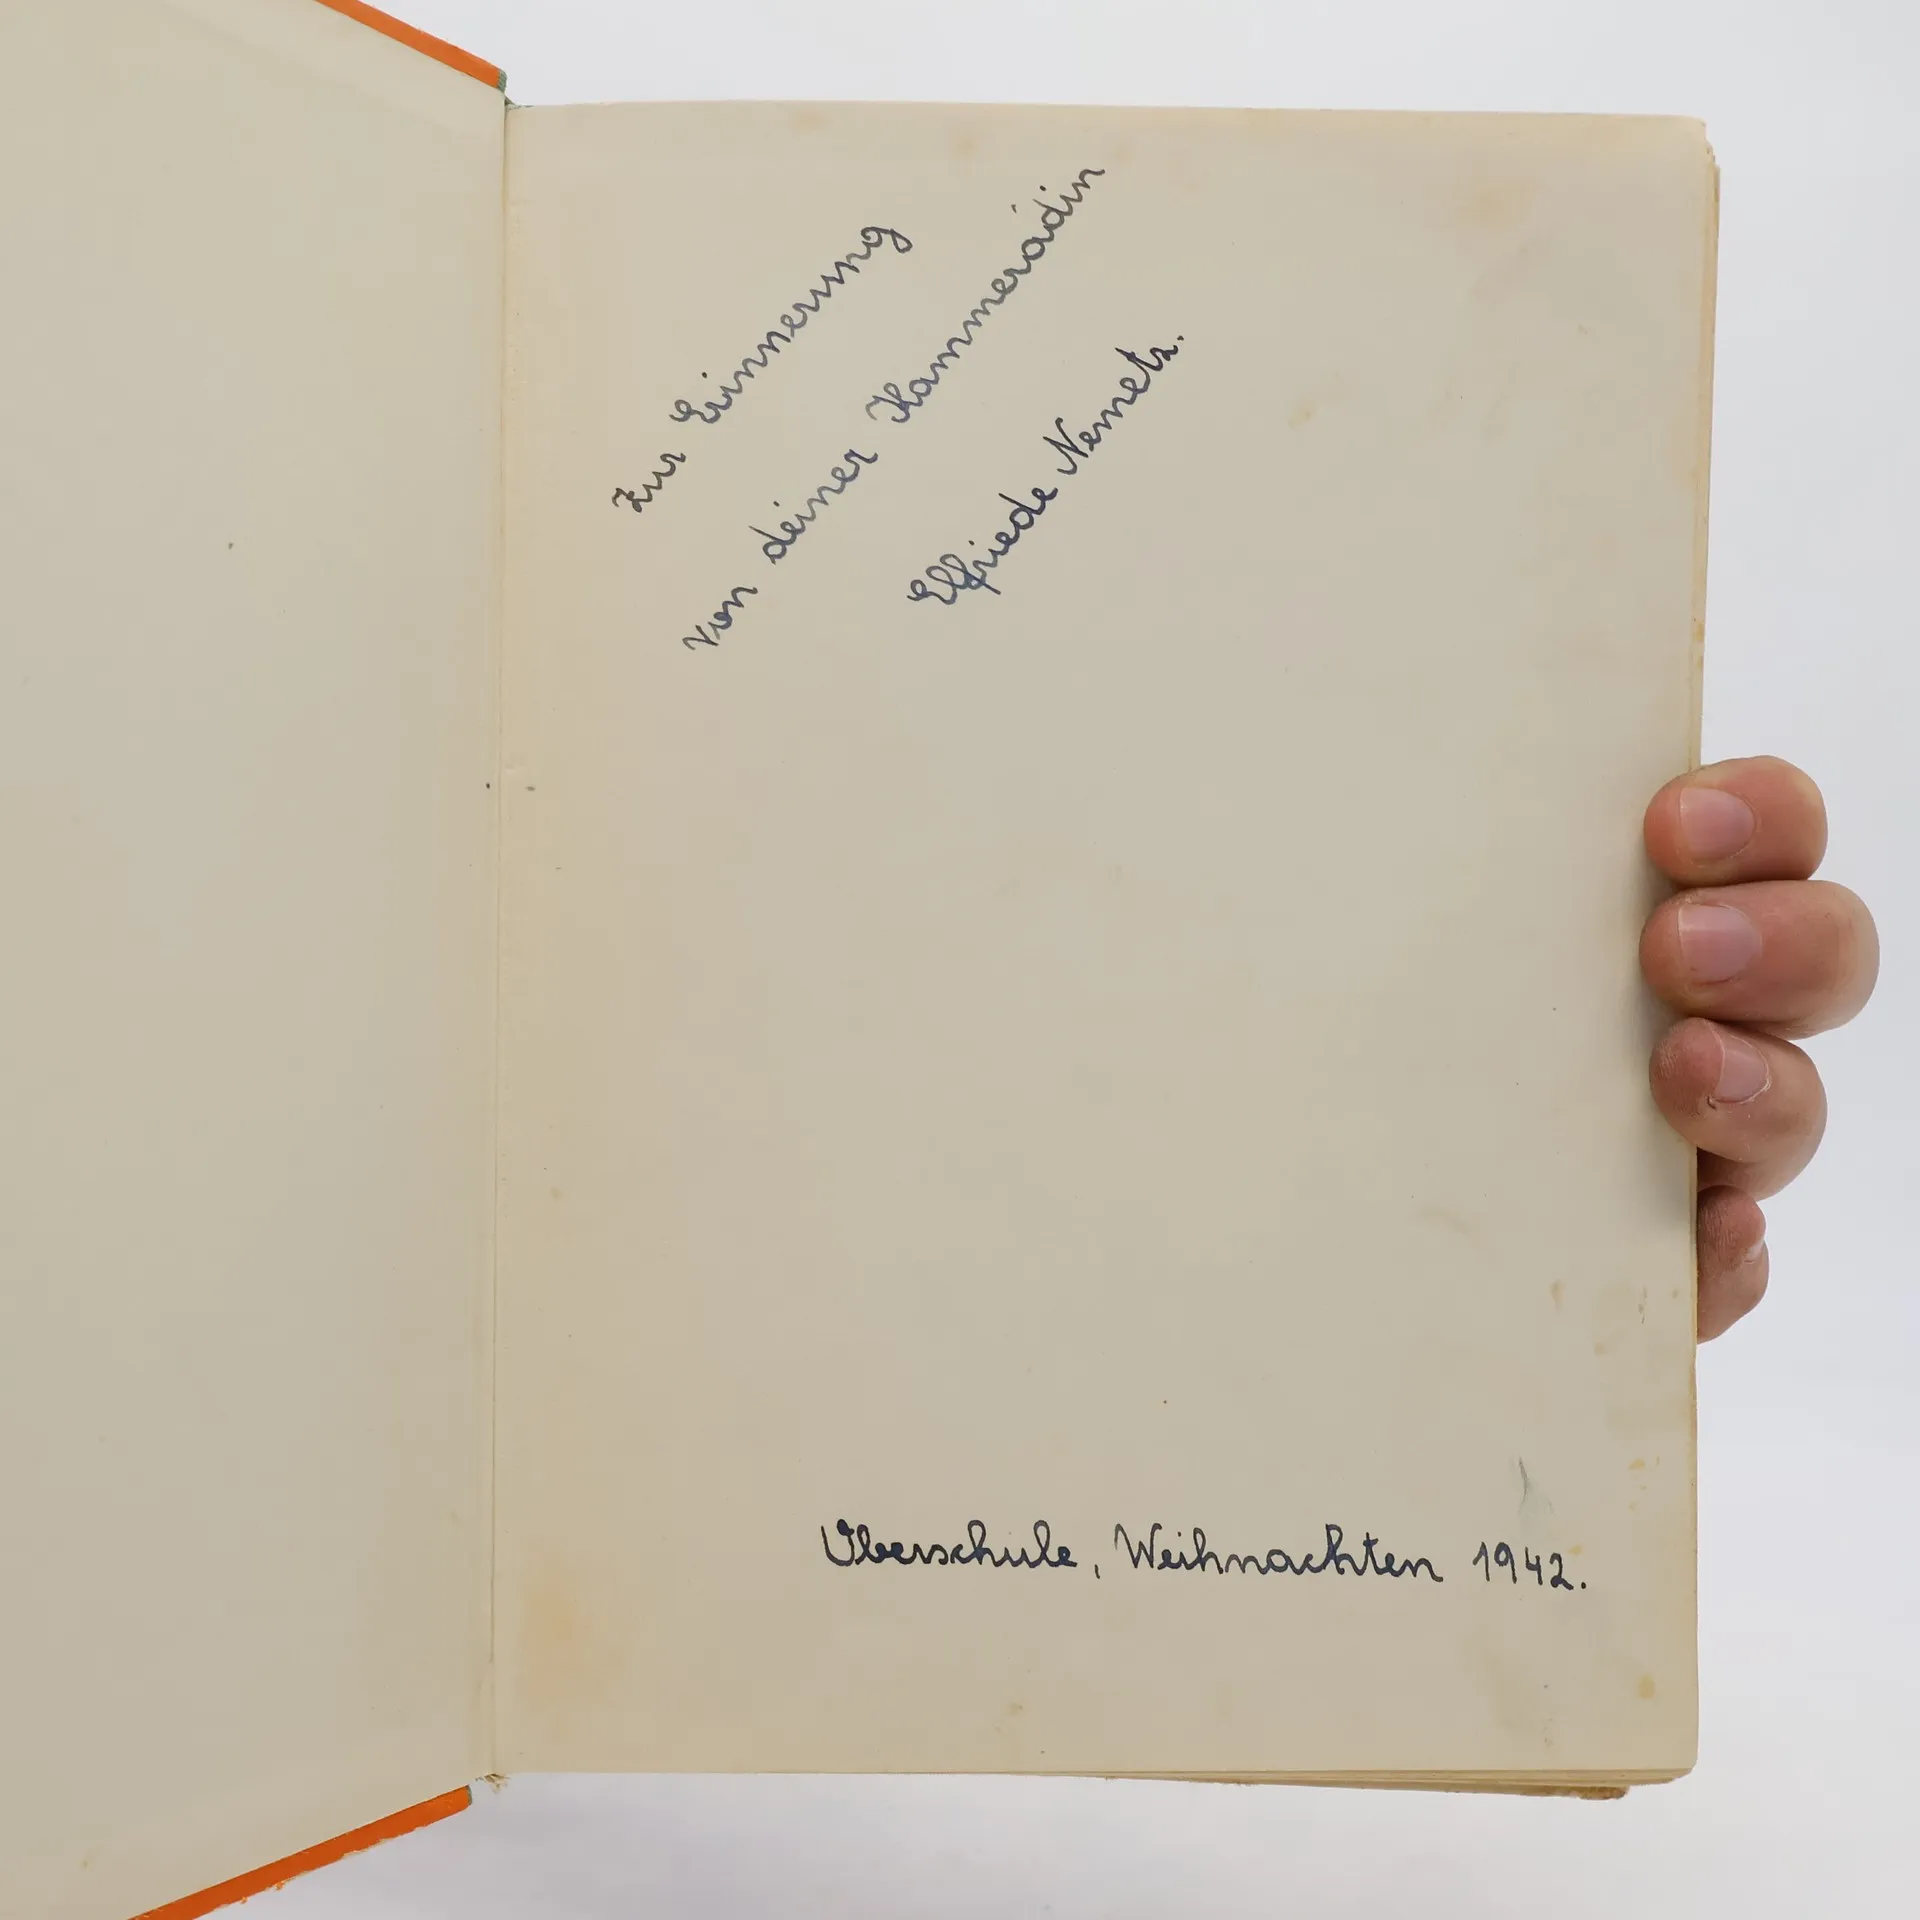 Zur Erinnerung
von deiner Kammeradin
Elfriede Nemetz.
Oberschule, Weihnachten 1942.